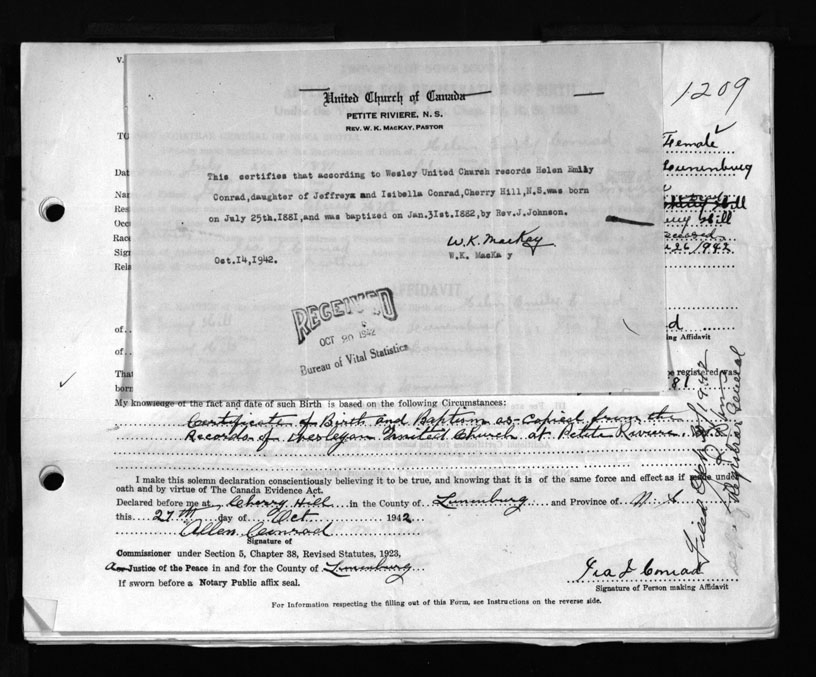 1209
United Church of Canada
PETITE RIVIERE, N. S.
REV. W. K. MACKAY, PASTOR
This certifies that according to Wesley United Church records Helen Emily
Conrad,daughter of Jeffreyx and Isibella Conrad,Cherry Hill,N.S.was born
on July 25th.I88I,and was baptized on Jan.3Ist.I882,by Rev.J.Johnson.
W.K. MacKay
W.K. MacKa y
Oct.I4,I942.
RECEIVED
OCT 20 1942
Bureau of Vital Statistics
V.
TO
Dat
Nar
Res
Occ
Race
Sign
Rela
of
of
That
born
Female
Lunenburg
Hill
Hill
26/1942
ing Affidavit
be registered was
81
My knowledge of the fact and date of such Birth is based on the following Circumstances:
Certificate of Birth and Baptism as Copied from the
Records of Wesleyan United Church at Petite Riviere. N.S.
I make this solemn declaration conscientiously believing it to be true, and knowing that it is of the same force and effect as if made under
oath and by virtue of The Canada Evidence Act.
Declared before me at Cherry Hill in the County of Lunenburg and Province of N. S.
this 27th day of Oct 1942
Allen Conrad
Signature of
Commissioner under Section 5, Chapter 38, Revised Statutes, 1923,
A Justice of the Peace in and for the County of Lunenburg
If sworn before a Notary Public affix seal.
Ira J Conrad
Signature of Person making Affidavit
For Information respecting the filling out of this Form, see Instructions on the reverse side.
Filed 1942
Registrar General